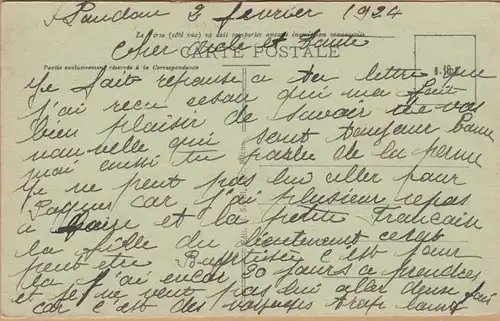 2 février 1924
Le verso (côté vue) ne doit comporter aucune inscription manuscrite
Cher oncle et tante
CARTE POSTALE
Partie exclusivement réservée à la Correspondance
Je fait reponse a ta lettre que
j'ai recu ce soir qui ma fait
bien plaisir de savoir de vos
nouvelle qui sont toujour bonne
moi aussi tu parle de la perme
Je ne peut pas lui aller pour
Paques car j'ai plusieur repas
a faire et la petite Francaise
la fille du lieutenant
peut être c'est pour
la j'ai encor 20 jours a prendres
et je ne veut pas lui aller deux foi
car c'est des voyages trop lour